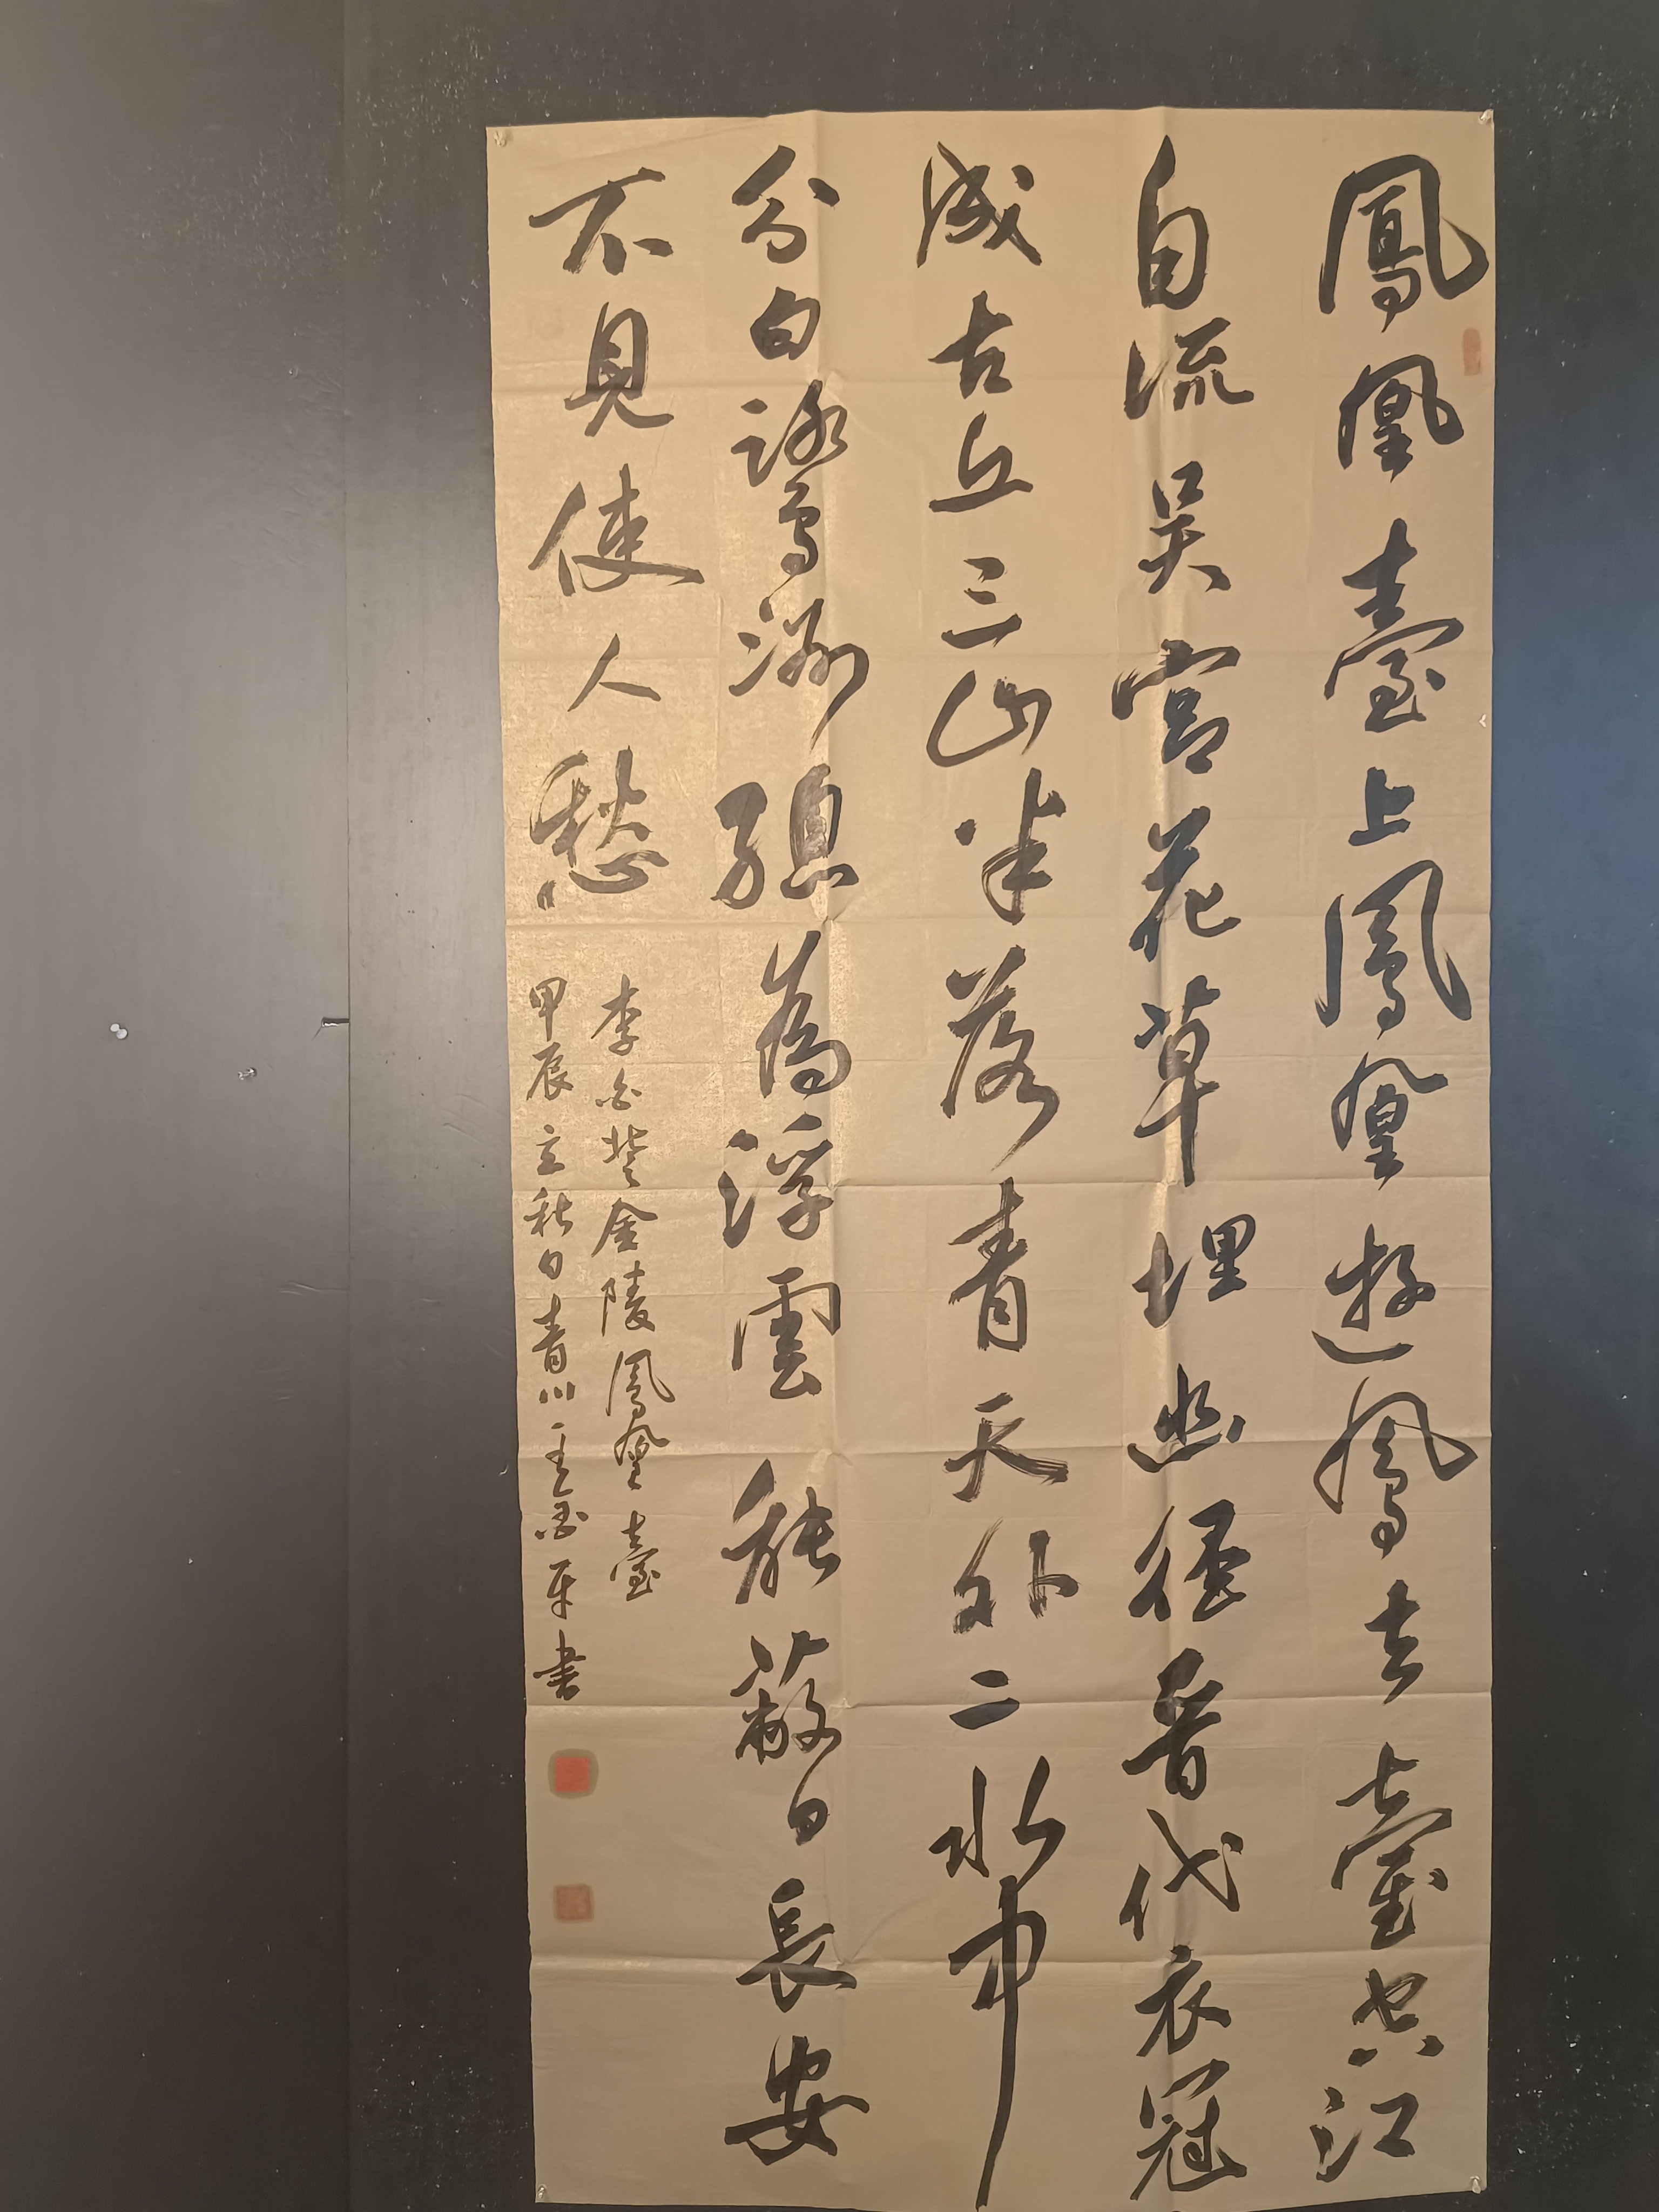 鳳凰臺上鳳凰遊鳳去臺空江
自流吳宮花草埋幽徑晉代衣冠
成古丘三山半落青天外二水中
分白鷺洲總為浮雲能蔽日長安
不見使人愁
李白登金陵鳳凰臺
甲辰立秋日青川書